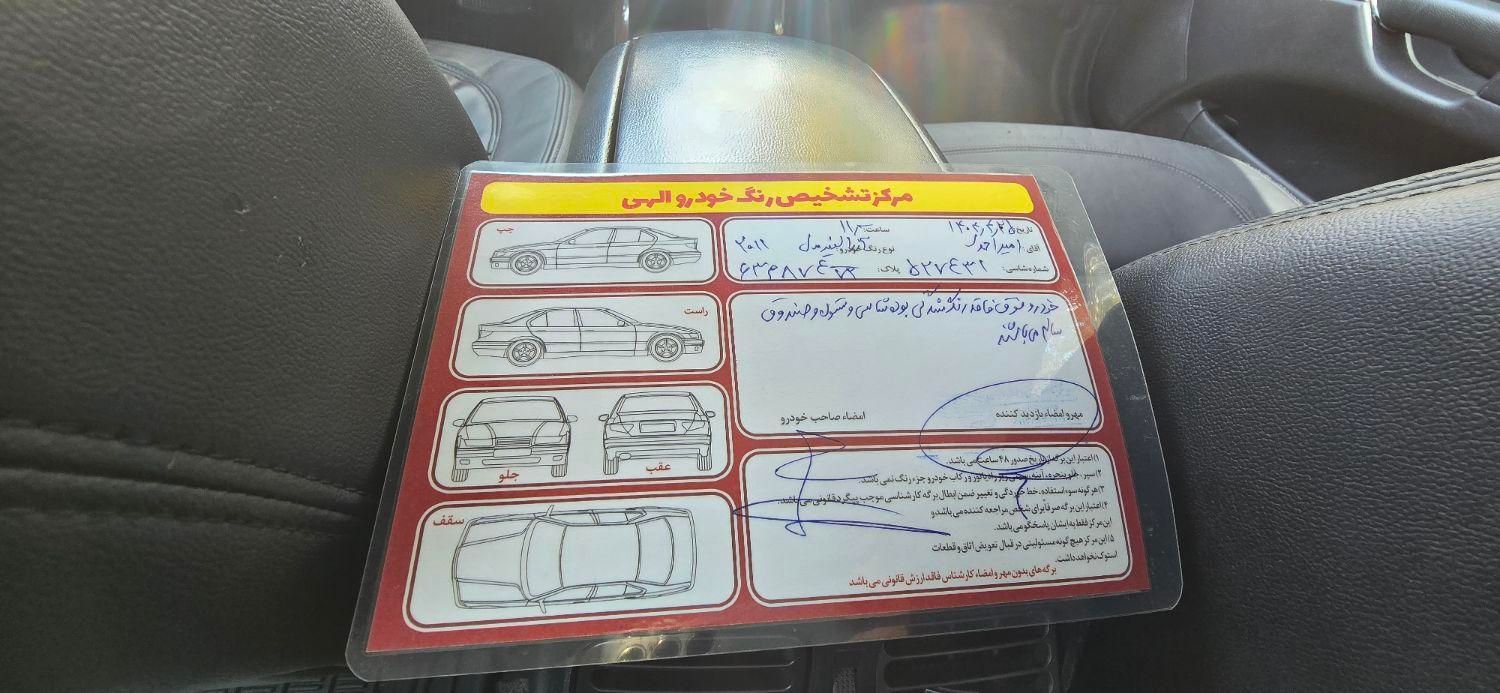 مرکز تشخیص رنگ خودرو الهی
تاریخ:
ساعت: ۱۱
آقای:
نوع رنگ خودرو: ۲۰۱۱
شماره شاسی: پلاک:
خودرو فوق فاقد رنگ شدگی بوده شاسی و ستون و صندوق
سالم می باشند
مهر و امضاء بازدید کننده
امضاء صاحب خودرو
۱) اعتبار این برگه از تاریخ صدور ۴۸ ساعت می باشد.
۲) سپر، جلو پنجره، آینه، رادیاتور و رکاب خودرو جزء رنگ نمی باشد.
۳) هرگونه سوء استفاده، خط خوردگی و تغییر ضمن ابطال برگه کارشناسی موجب پیگرد قانونی می باشد.
۴) اعتبار این برگه صرفاً برای شخص مراجعه کننده می باشد و
این مرکز فقط به ایشان پاسخگو می باشد.
۵) این مرکز هیچ گونه مسئولیتی در قبال تعویض اتاق و قطعات
استوک نخواهد داشت.
برگه های بدون مهر و امضاء کارشناس فاقد ارزش قانونی می باشد
چپ
راست
جلو
عقب
سقف